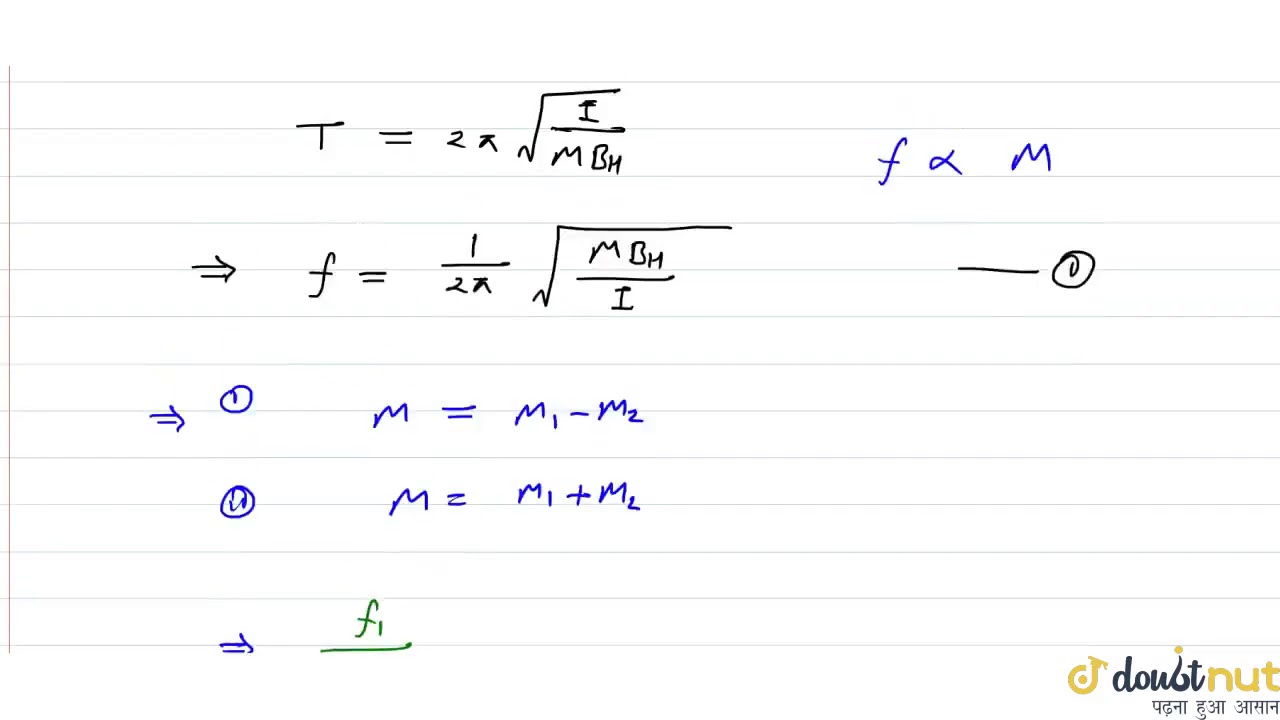 T = 2π √(I / M B_H)
f ∝ M
⇒ f = 1/2π √(M B_H / I) —— ①
⇒ ① M = M₁ - M₂
ⓘⓘ M = M₁ + M₂
⇒ f₁
doubtnut
पढ़ना हुआ आसान